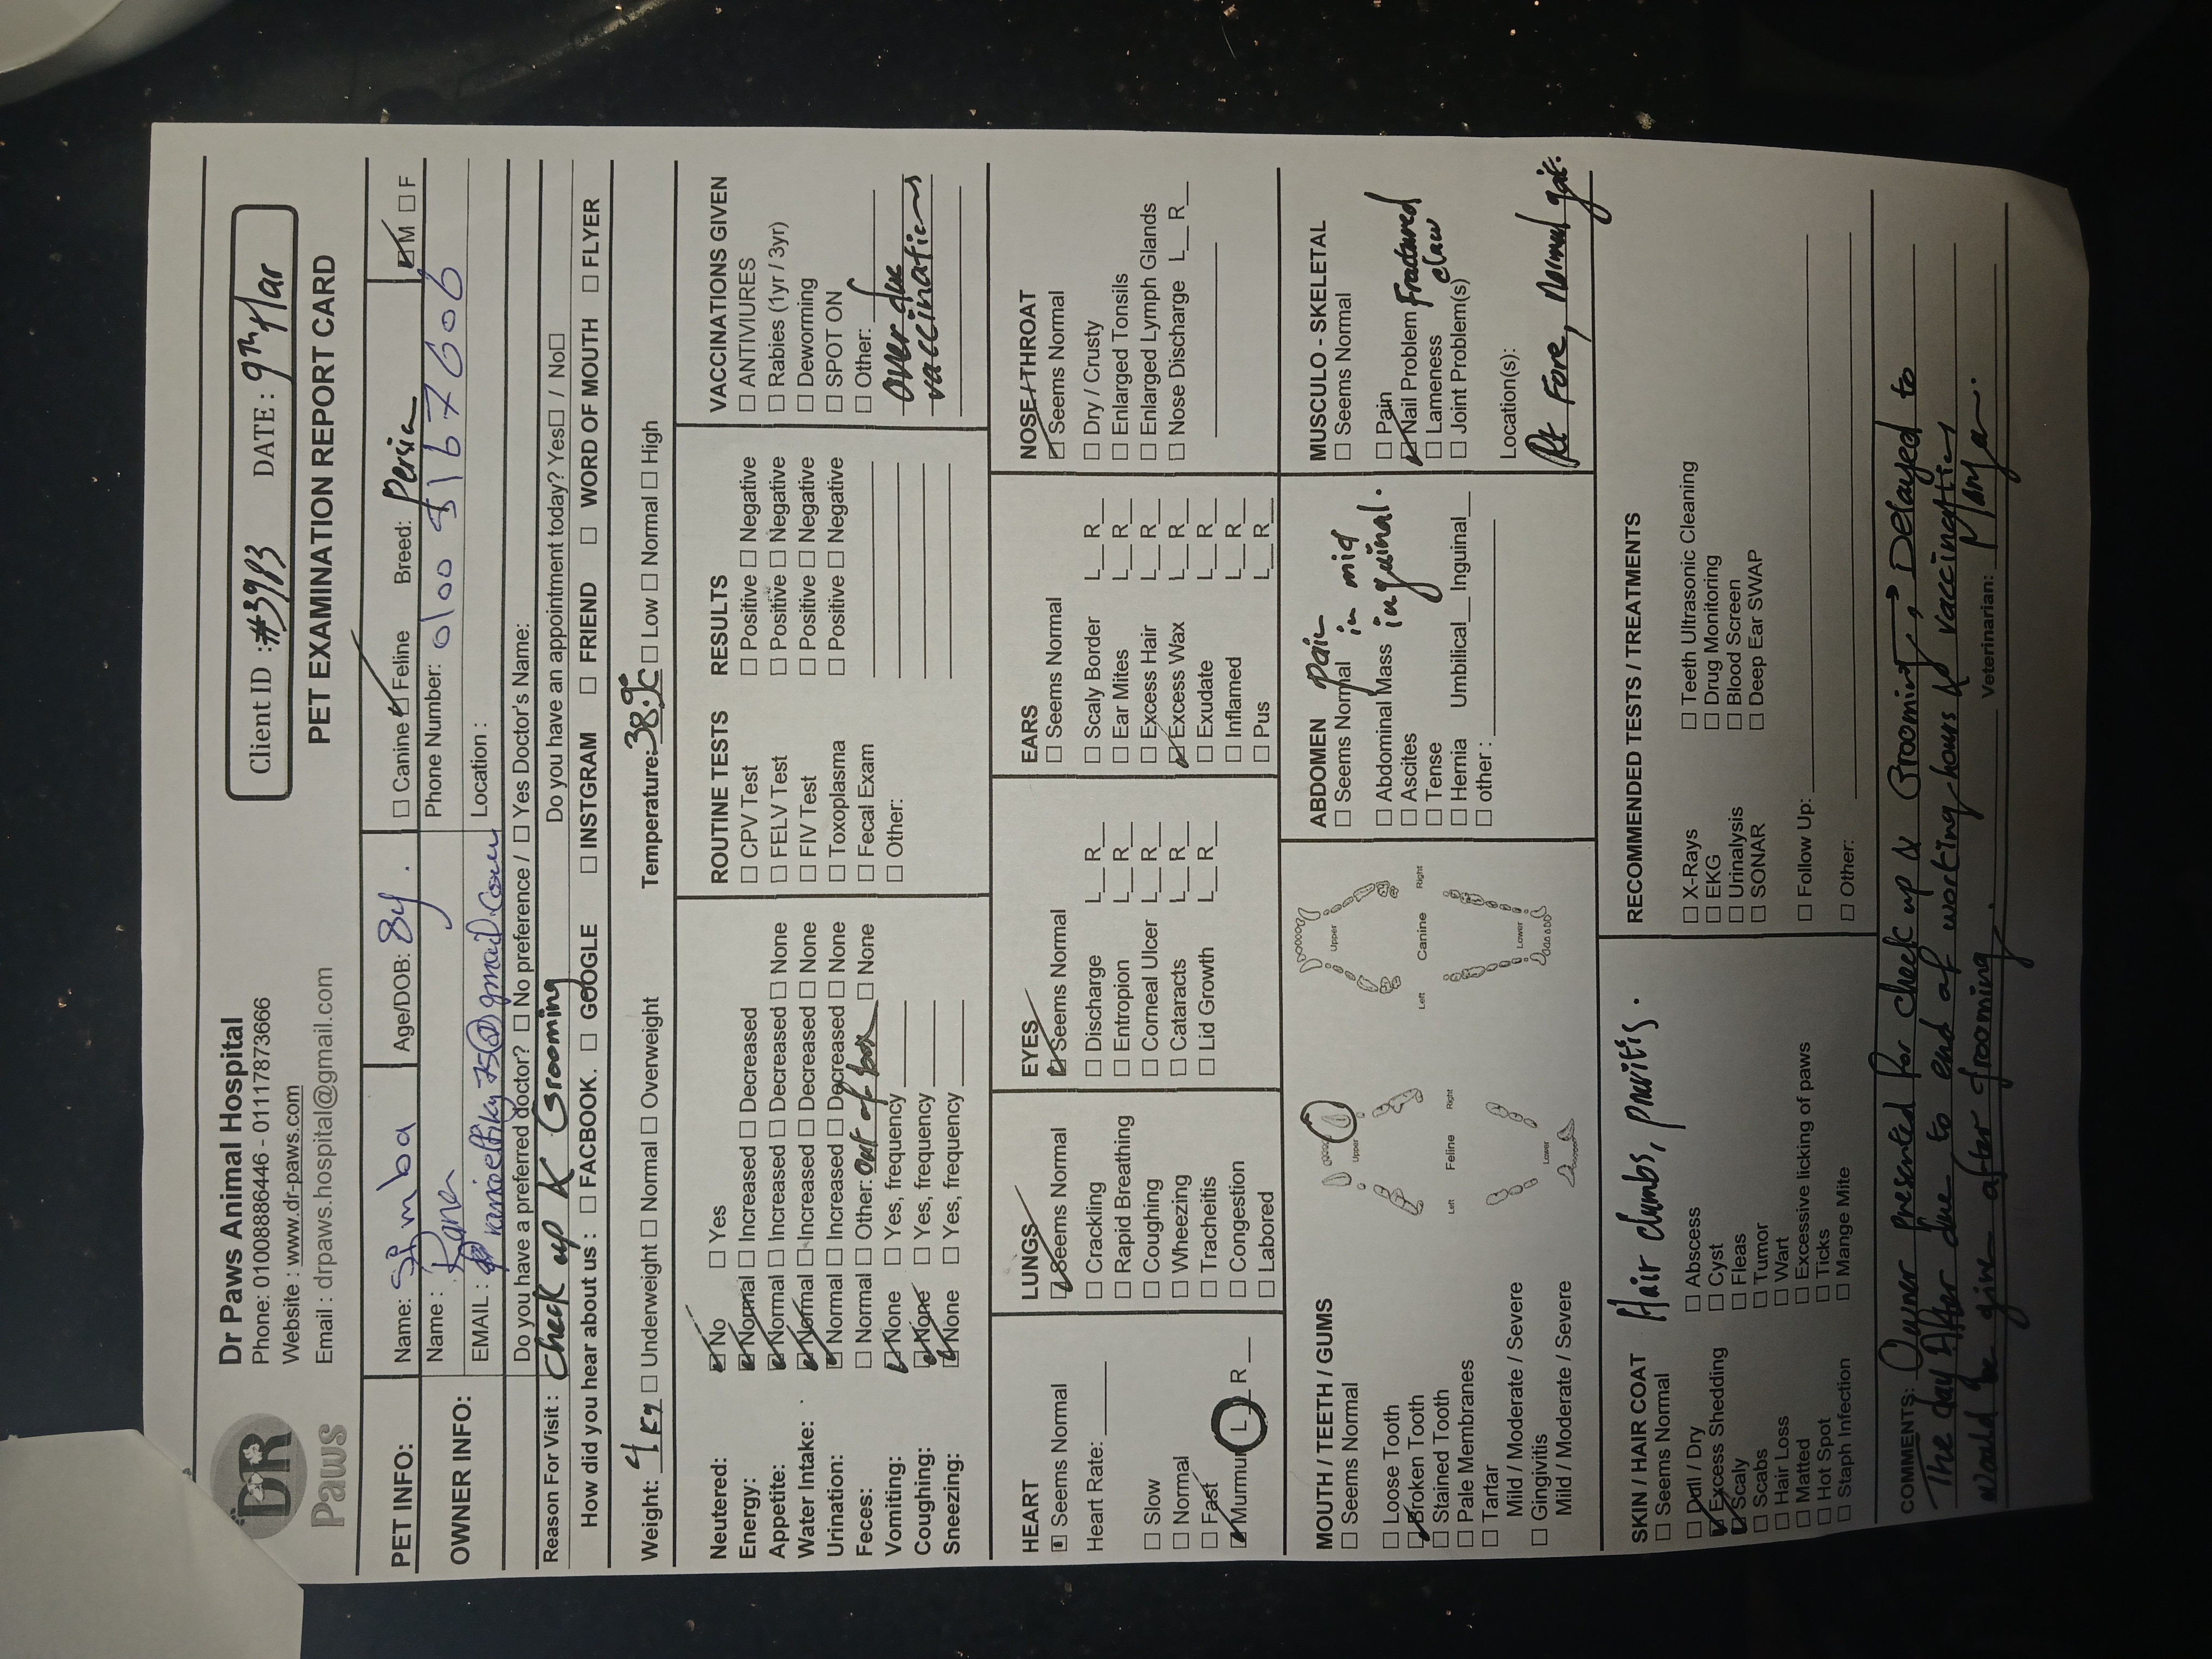 DR
Paws
Dr Paws Animal Hospital
Phone: 01008886446 - 01117873666
Website : www.dr-paws.com
Email : drpaws.hospital@gmail.com
Client ID :#3983 DATE: 9th Mar
PET EXAMINATION REPORT CARD
PET INFO: Name: Simba Age/DOB: 8y. ☐ Canine ☑ Feline Breed: Persian ☑ M ☐ F
OWNER INFO: Name : Rana Phone Number: 0100 5167606
EMAIL : @gmail.com Location :
Do you have a preferred doctor? ☐ No preference / ☐ Yes Doctor's Name:
Reason For Visit : Check up & Grooming Do you have an appointment today? Yes☐ / No☐
How did you hear about us : ☐ FACEBOOK. ☐ GOOGLE ☐ INSTGRAM ☐ FRIEND ☐ WORD OF MOUTH ☐ FLYER
Weight: 4 kg ☐ Underweight ☐ Normal ☐ Overweight Temperature: 38.9°c ☐ Low ☐ Normal ☐ High
Neutered: ☑ No ☐ Yes
Energy: ☑ Normal ☐ Increased ☐ Decreased
Appetite: ☑ Normal ☐ Increased ☐ Decreased ☐ None
Water Intake: ☑ Normal ☐ Increased ☐ Decreased ☐ None
Urination: ☑ Normal ☐ Increased ☐ Decreased ☐ None
Feces: ☐ Normal ☐ Other: out of box ☐ None
Vomiting: ☑ None ☐ Yes, frequency
Coughing: ☑ None ☐ Yes, frequency
Sneezing: ☑ None ☐ Yes, frequency
ROUTINE TESTS RESULTS
☐ CPV Test ☐ Positive ☐ Negative
☐ FELV Test ☐ Positive ☐ Negative
☐ FIV Test ☐ Positive ☐ Negative
☐ Toxoplasma ☐ Positive ☐ Negative
☐ Fecal Exam
☐ Other:
VACCINATIONS GIVEN
☐ ANTIVIURES
☐ Rabies (1yr / 3yr)
☐ Deworming
☐ SPOT ON
☐ Other:
Over due
vaccinations
HEART
☐ Seems Normal
Heart Rate:
☐ Slow
☐ Normal
☐ Fast
☑ Murmur L__R__
LUNGS
☑ Seems Normal
☐ Crackling
☐ Rapid Breathing
☐ Coughing
☐ Wheezing
☐ Tracheitis
☐ Congestion
☐ Labored
EYES
☑ Seems Normal
☐ Discharge L__R__
☐ Entropion L__R__
☐ Corneal Ulcer L__R__
☐ Cataracts L__R__
☐ Lid Growth L__R__
EARS
☐ Seems Normal
☐ Scaly Border L__R__
☐ Ear Mites L__R__
☐ Excess Hair L__R__
☑ Excess Wax L__R__
☐ Exudate L__R__
☐ Inflamed L__R__
☐ Pus L__R__
NOSE / THROAT
☑ Seems Normal
☐ Dry / Crusty
☐ Enlarged Tonsils
☐ Enlarged Lymph Glands
☐ Nose Discharge L__R__
MOUTH / TEETH / GUMS
☐ Seems Normal
☐ Loose Tooth
☑ Broken Tooth
☐ Stained Tooth
☐ Pale Membranes
☐ Tartar
Mild / Moderate / Severe
☐ Gingivitis
Mild / Moderate / Severe
Upper
Left Feline Right
Lower
Upper
Left Canine Right
Lower
ABDOMEN Pain
☐ Seems Normal in mid
☐ Abdominal Mass inguinal.
☐ Ascites
☐ Tense
☐ Hernia Umbilical__ Inguinal__
☐ other :
MUSCULO - SKELETAL
☐ Seems Normal
☐ Pain
☑ Nail Problem Fractured claw
☐ Lameness
☐ Joint Problem(s)
Location(s):
Rt Fore, Normal gait.
SKIN / HAIR COAT Hair clumbs, pruritis.
☐ Seems Normal
☐ Dull / Dry
☑ Excess Shedding
☑ Scaly
☐ Scabs
☐ Hair Loss
☐ Matted
☐ Hot Spot
☐ Staph Infection
☐ Abscess
☐ Cyst
☐ Fleas
☐ Tumor
☐ Wart
☐ Excessive licking of paws
☐ Ticks
☐ Mange Mite
RECOMMENDED TESTS / TREATMENTS
☐ X-Rays
☐ EKG
☐ Urinalysis
☐ SONAR
☐ Teeth Ultrasonic Cleaning
☐ Drug Monitoring
☐ Blood Screen
☐ Deep Ear SWAP
☐ Follow Up:
☐ Other:
COMMENTS: Owner presented for check up & Grooming, Delayed to
The day After due to end of working hours & vaccination
would be given after grooming. Veterinarian: